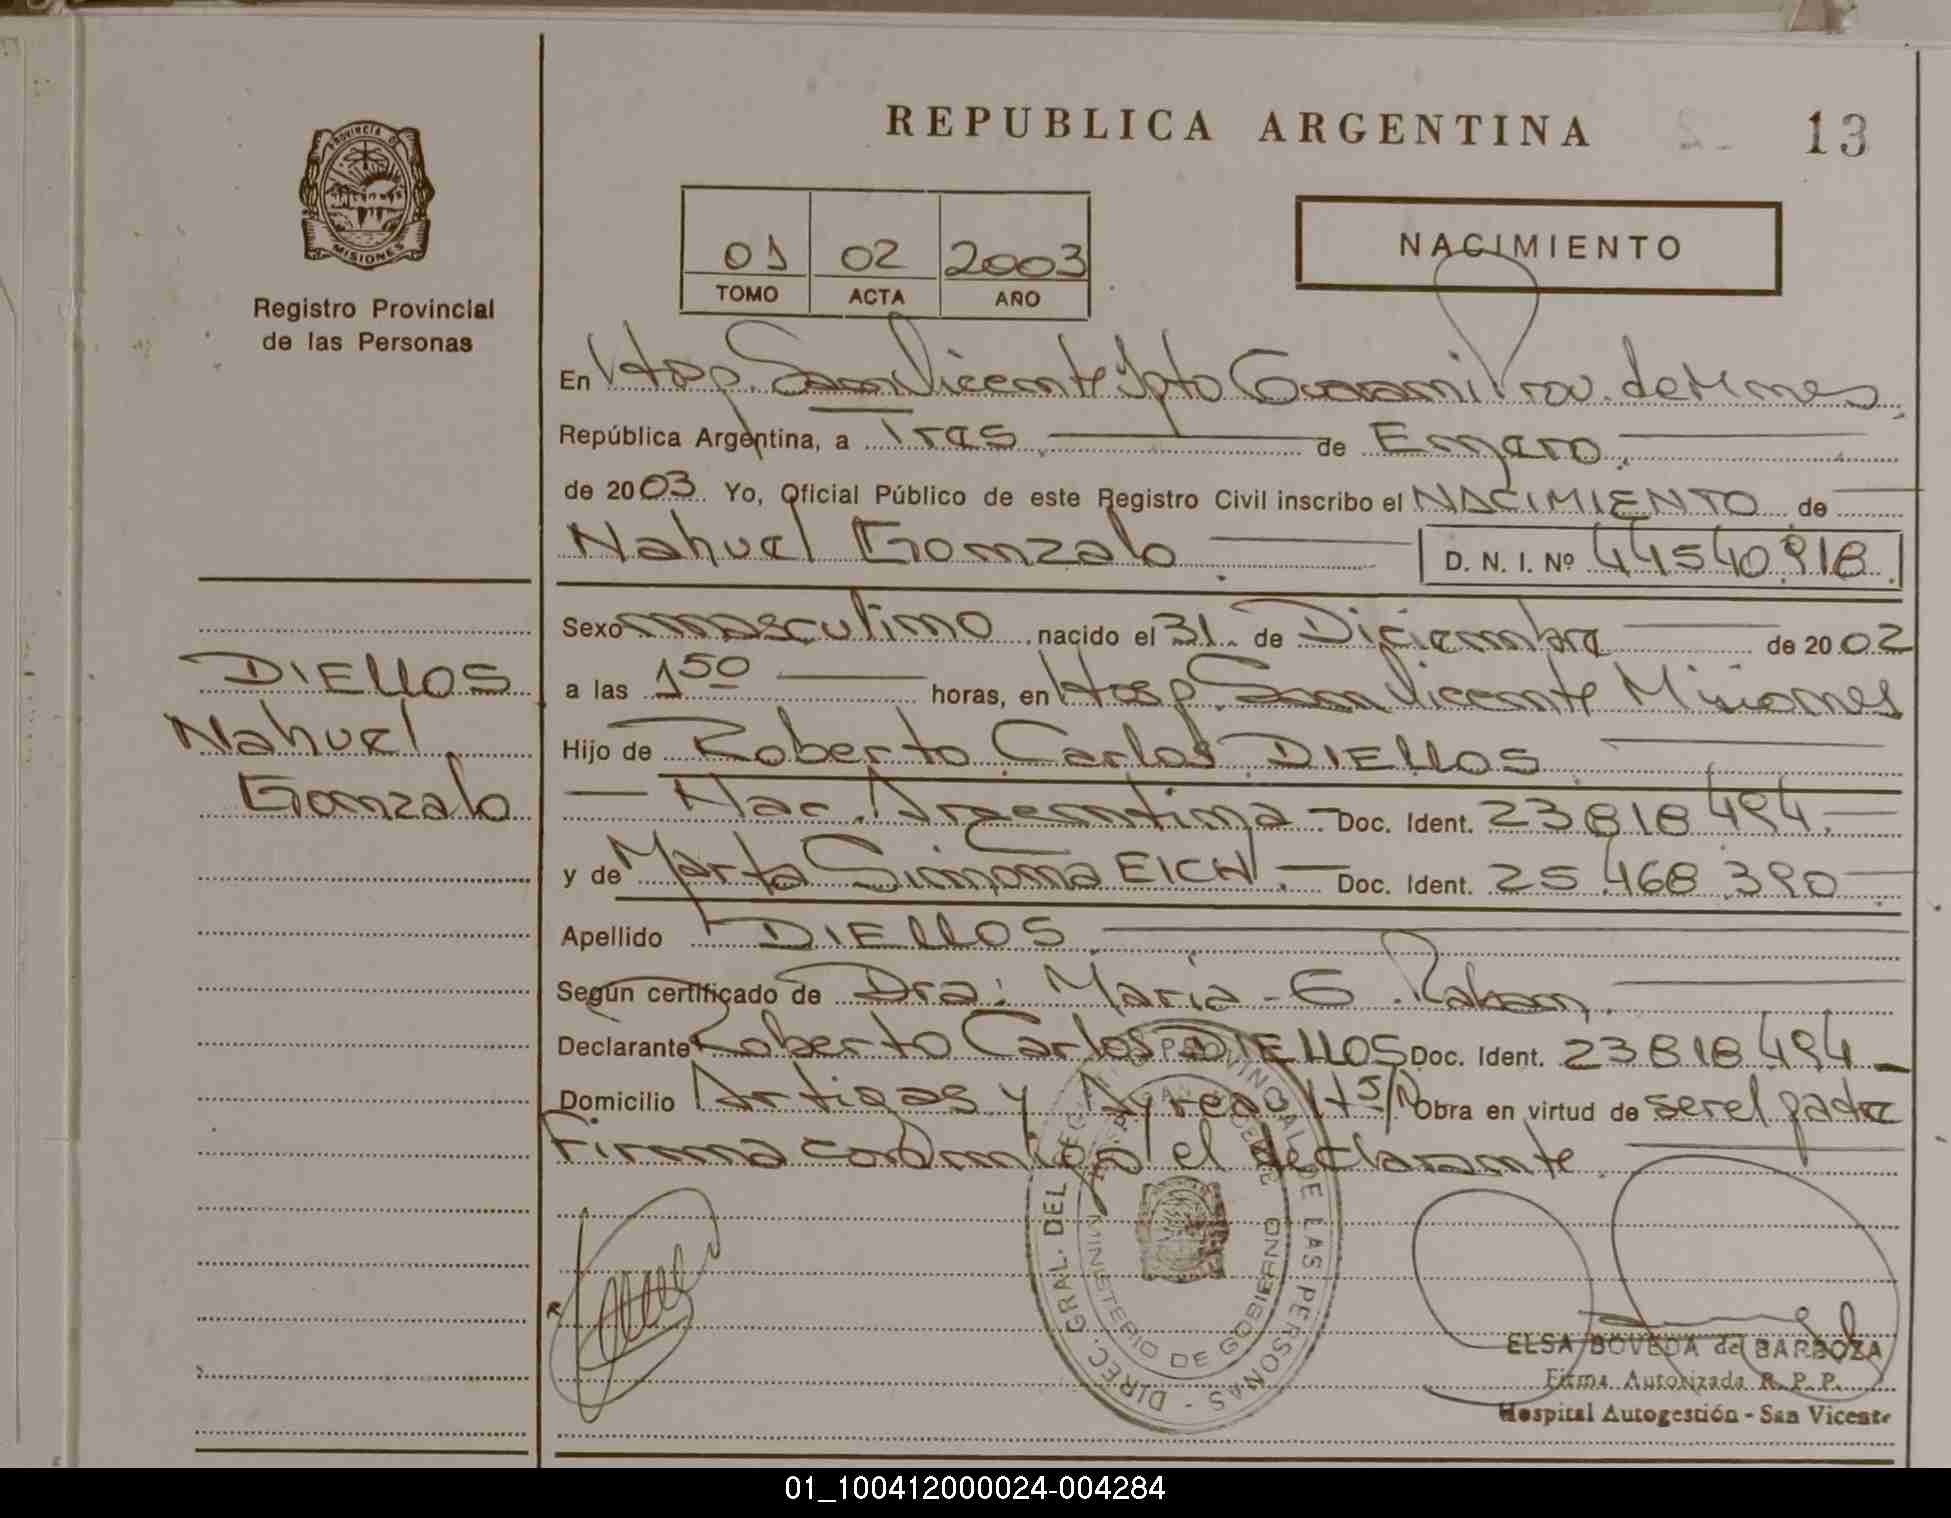 REPUBLICA ARGENTINA
13
PROVINCIA DE
MISIONES
Registro Provincial
de las Personas
01 02 2003
TOMO ACTA AÑO
NACIMIENTO
En Hosp. San Vicente Dpto Guarani Prov. de Mnes
República Argentina, a Tres de Enero
de 2003 Yo, Oficial Público de este Registro Civil inscribo el NACIMIENTO de
Nahuel Gonzalo D. N. I. Nº 44540.918.
DIELLOS
Nahuel
Gonzalo
Sexo masculino nacido el 31 de Diciembre de 2002
a las 1 50 horas, en Hosp. San Vicente Misiones
Hijo de Roberto Carlos DIELLOS
Nac. Argentina - Doc. Ident. 23 818 494.
y de Marta Simona EICH. - Doc. Ident. 25 468 390
Apellido DIELLOS
Según certificado de Dra: Maria - E
Declarante Roberto Carlos DIELLOS Doc. Ident. 23 818 494
Domicilio Artigas y S/N Obra en virtud de ser el padre
Firma conmigo el declarante.
DIREC. GRAL. DEL REG. PROVINCIAL DE LAS PERSONAS -
MINISTERIO DE GOBIERNO
ELSA BOVEDA de BARBOZA
Firma Autorizada R. P. P.
Hospital Autogestión - San Vicente
01_100412000024-004284